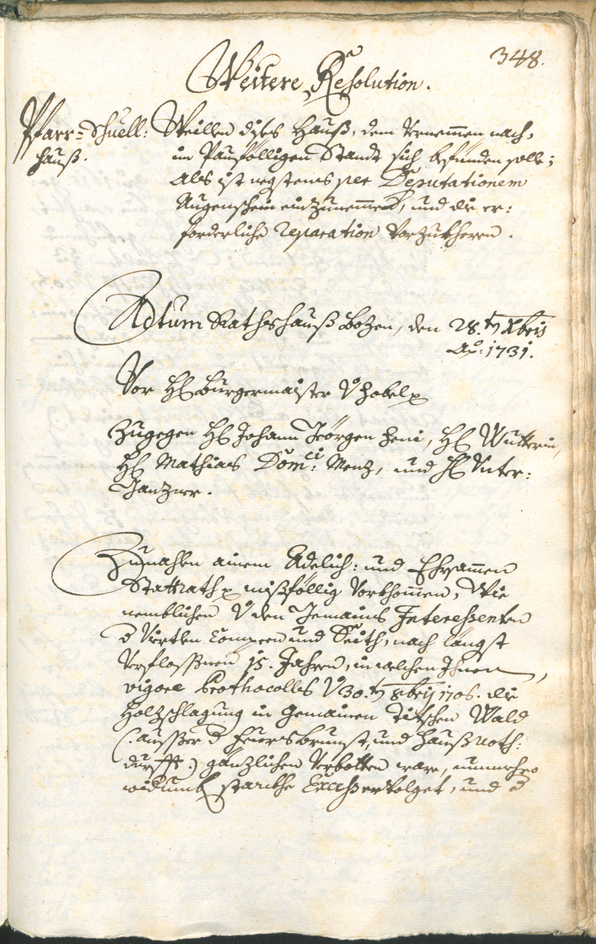 348.
Weitere Resolution.
Pfarr=Schuell:
hauß.
Weillen dises Hauß, dem Vernemmen nach,
in Paufölligen Standt sich befünden solle;
Als ist negstens per Deputationem
Augenschein einzunemmen, und die er:
forderliche reparation vorzukheren.
Actum Rathshauß Bozen, den 28.ten Xbris
Ao: 1731.
Vor H: Burgermaister v Zobel
Zugegen H: Johann Jörgen Zeni, H: Wutterin,
H: Mathias Dom: Menz, und H: Unter:
Zunahlen ainem Adelich: und Ehrsammen
Stattrath mißföllig vorkhommen, Wie
nemblichen v den Gemains Interessenten
d Viertln Camperen und Leith, nach längst
verflossnen 15. Jahren, in welchen Ihnen,
vigore Prothocolles v 30.ten 8bris 1706. die
Holzschlagung in Gemainen Titschen Wald
(: ausser d Feuersbrunst, und Haußnoth:
durfft :) gänzlichen verbotten ware, nunmehro
widumb starkhe Excess ervolget, und d